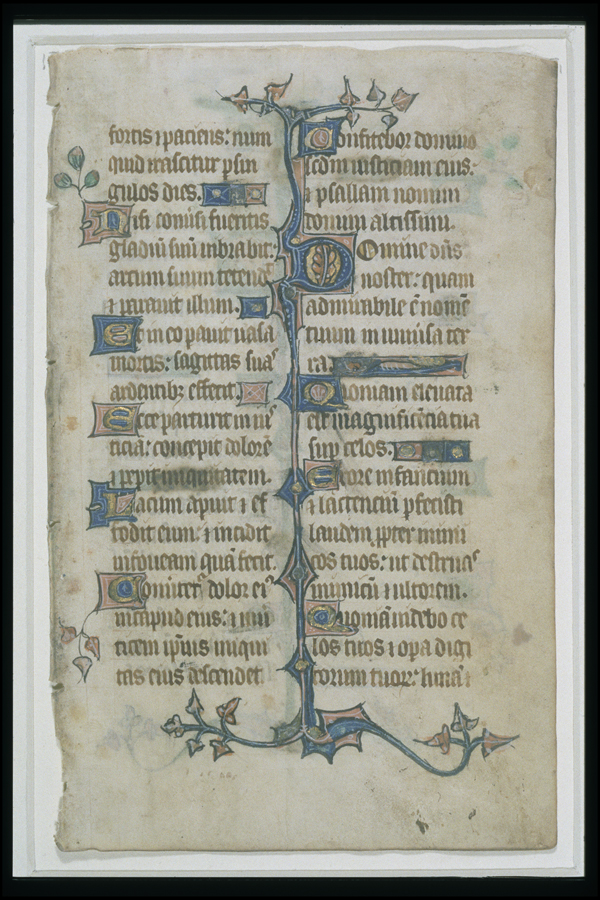 fortis ⁊ paciens: num
quid irascitur p̱ sin
gulos dies.
Nisi conũsi fueritis
gladiũ suũ uibrabit:
arcum suum tetendᷣ
⁊ parauit illum.
Et in eo parauit uasa
mortis: sagittas suas
ardentibꝫ effecit.
Ecce parturit in ius
ticia: concepit dolorẽ
⁊ peꝑit iniquitatem.
Lacum aperuit ⁊ ef
fodit eum: ⁊ incidit
in foueam quã fecit.
Conuertetᷣ dolor eiꝰ
in caput eius: ⁊ in u
ticem ip̃ius iniqui
tas eius descendet
Confitebor domino
scdm̃ iusticiam eius:
⁊ psallam nomini
domini altissimi.
Domine dñs
noster: quam
admirabile ẽ nomẽ
tuum in uniuſa ter
ra:
Quoniam eleuata
est magnificẽcia tua
suꝑ celos.
Ex ore infancium
⁊ lactenciũ ꝑfecisti
laudem ꝓpter inimi
cos tuos: ut destruas
inimicũ ⁊ ultorem.
Quoniã uidebo ce
los tuos ⁊ opa digi
torum tuoꝝ: lunã ⁊